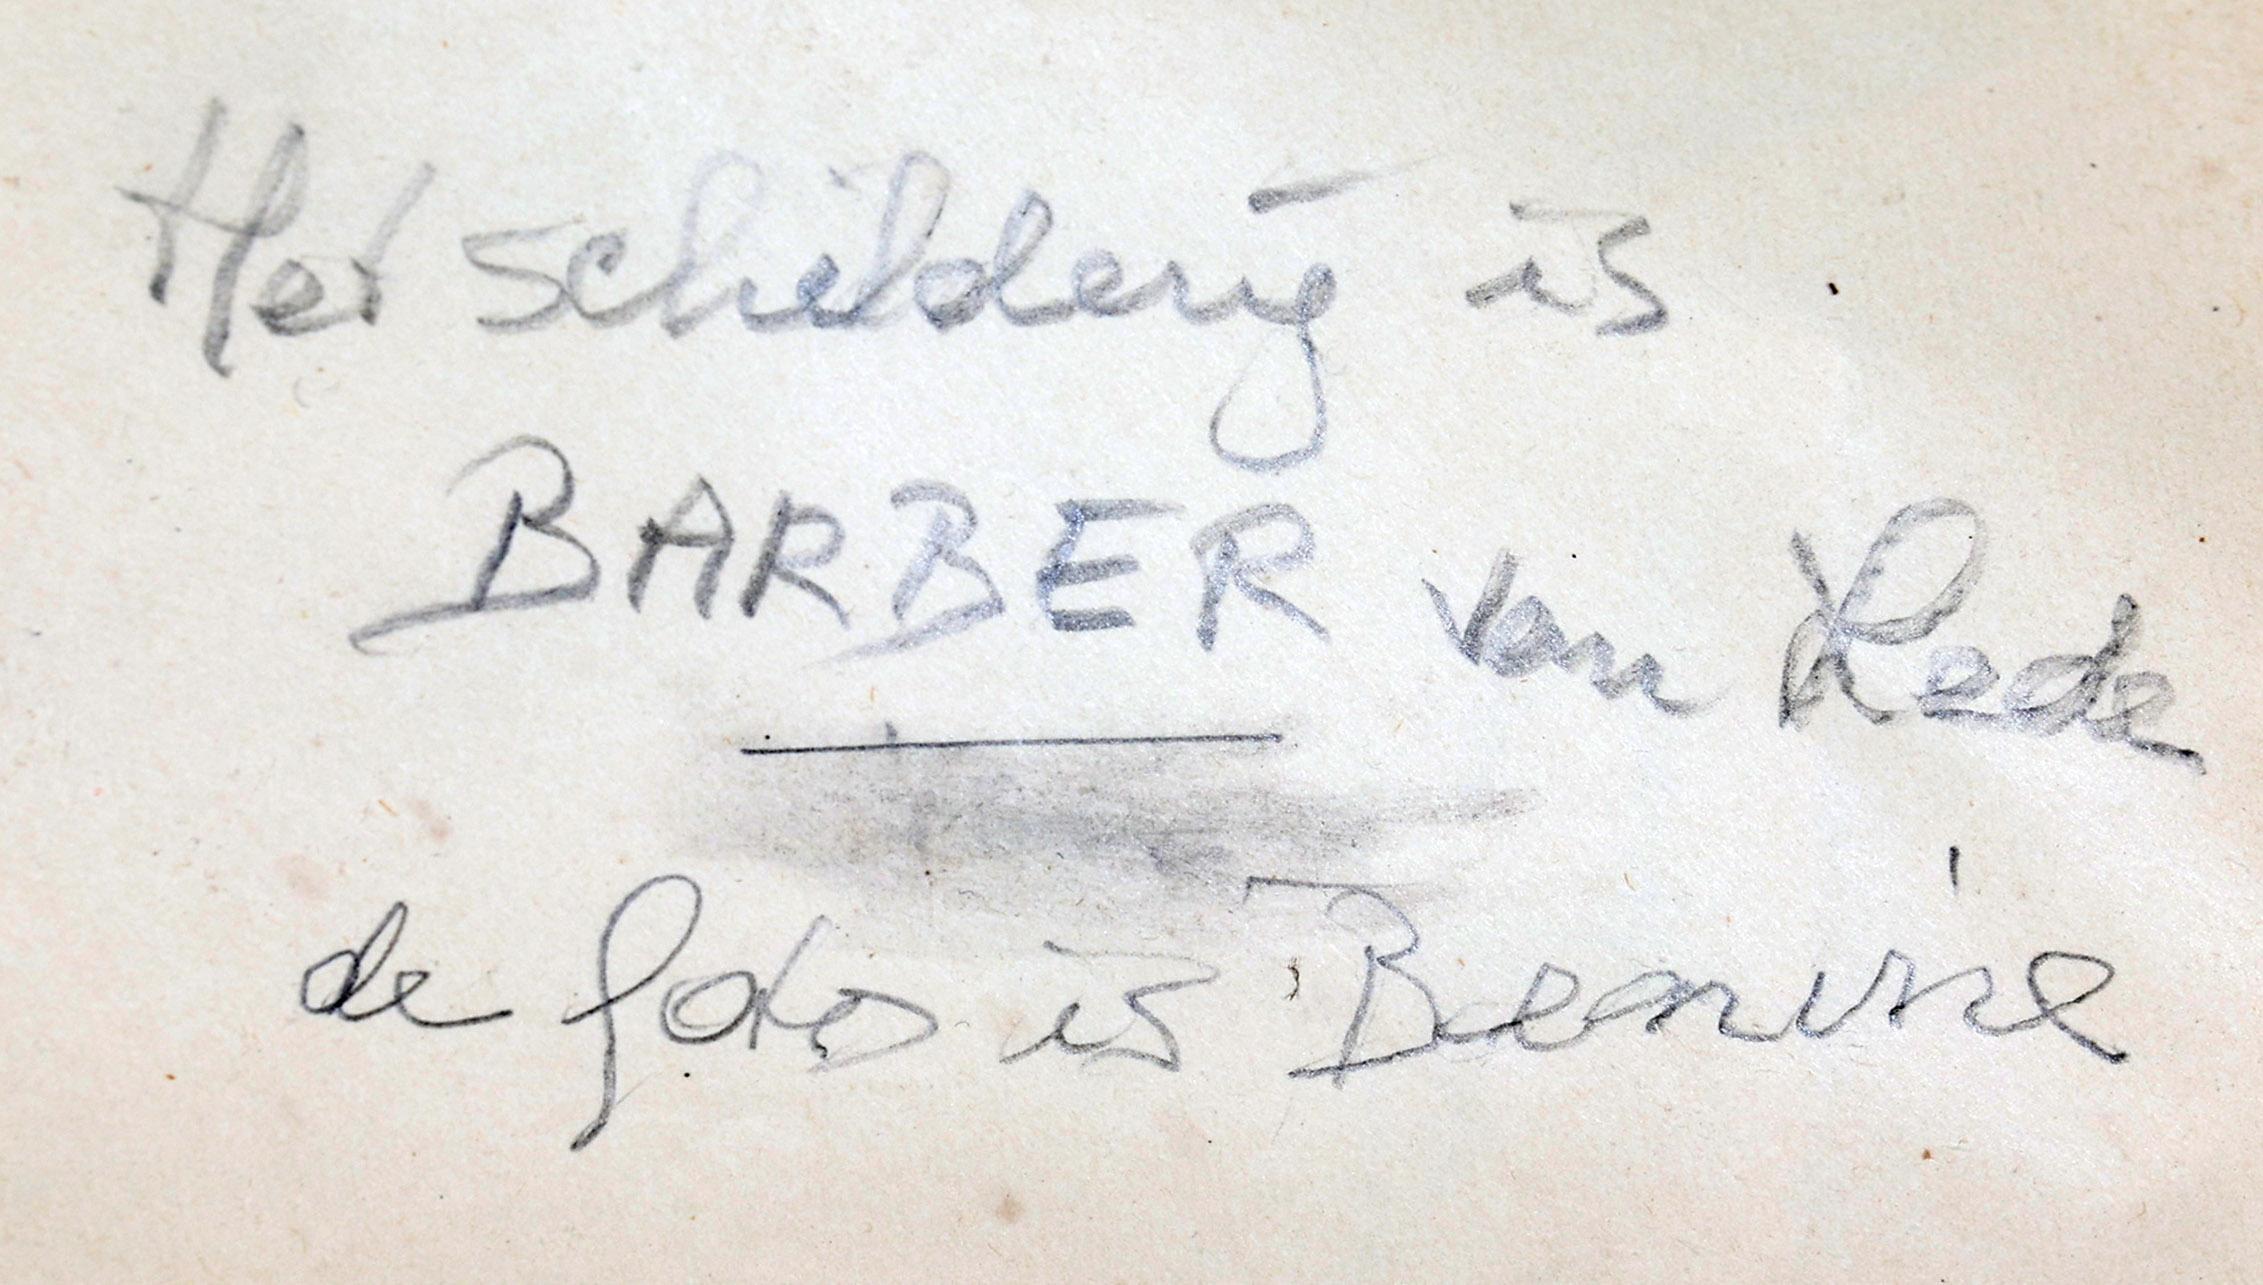 Het schilderij is
BARBER van Lede
de foto is